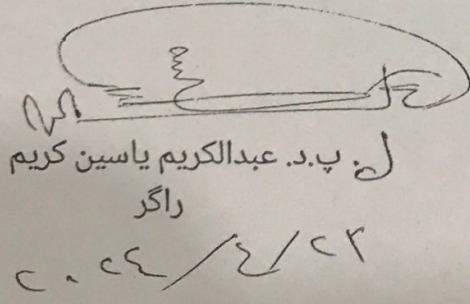 پ.د. عبدالکریم یاسین کریم
راگر
٢٠٢٤/٤/٢٣